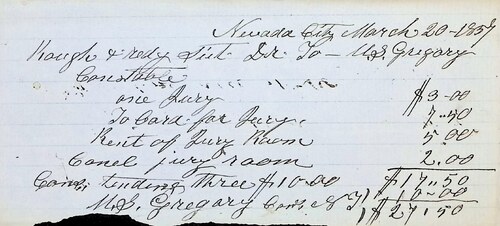 Nevada City March 20-1857
Rough & redy Dist. Dr. To - M.S. Gregory
Constable
one Jury $3-00
To Card for Jury. 7-50
Rent of Jury Room 5.00
Canel jury room 2.00
Cons. tending Three $10-00 $17..50
10-00
M.S. Gregory Cons N.T) $27.50